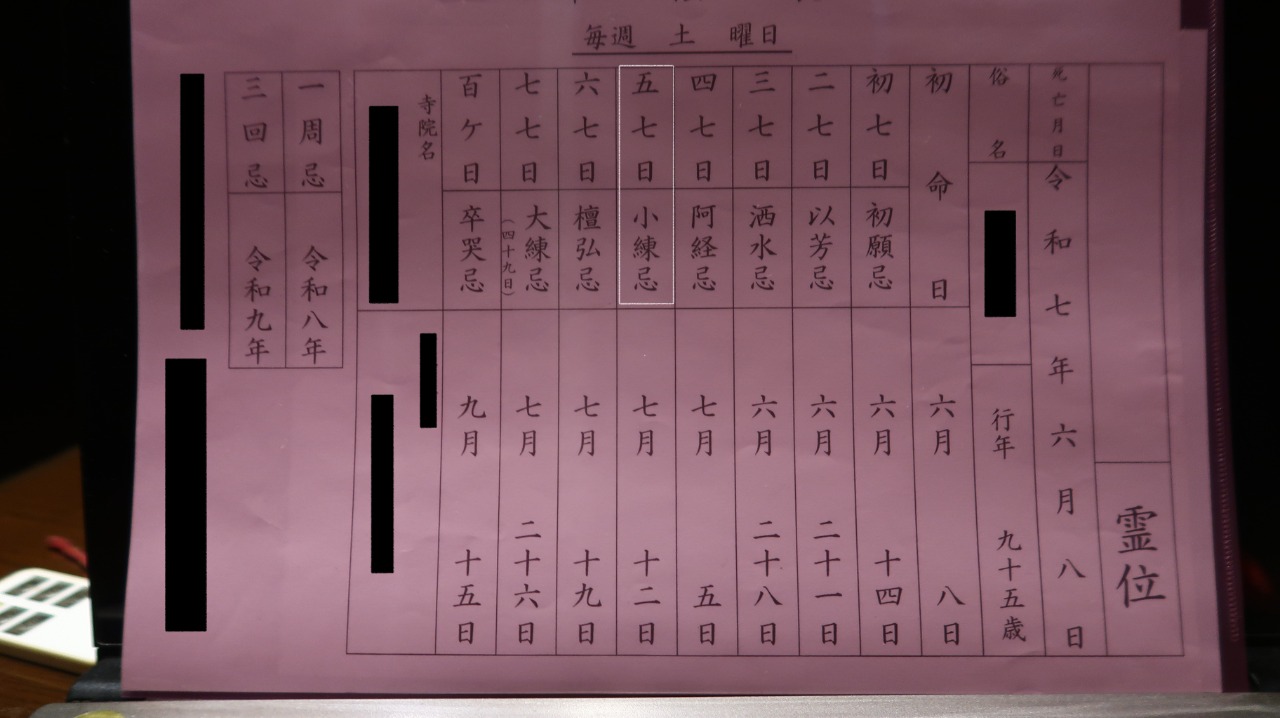 毎週 土 曜日
霊位
死亡月日 令和七年六月八日
俗名 行年 九十五歳
初命日 六月 八日
初七日 初願忌 六月 十四日
二七日 以芳忌 六月 二十一日
三七日 洒水忌 六月 二十八日
四七日 阿経忌 七月 五日
五七日 小練忌 七月 十二日
六七日 檀弘忌 七月 十九日
七七日 大練忌 (四十九日) 七月 二十六日
百ケ日 卒哭忌 九月 十五日
寺院名
一周忌 令和八年
三回忌 令和九年